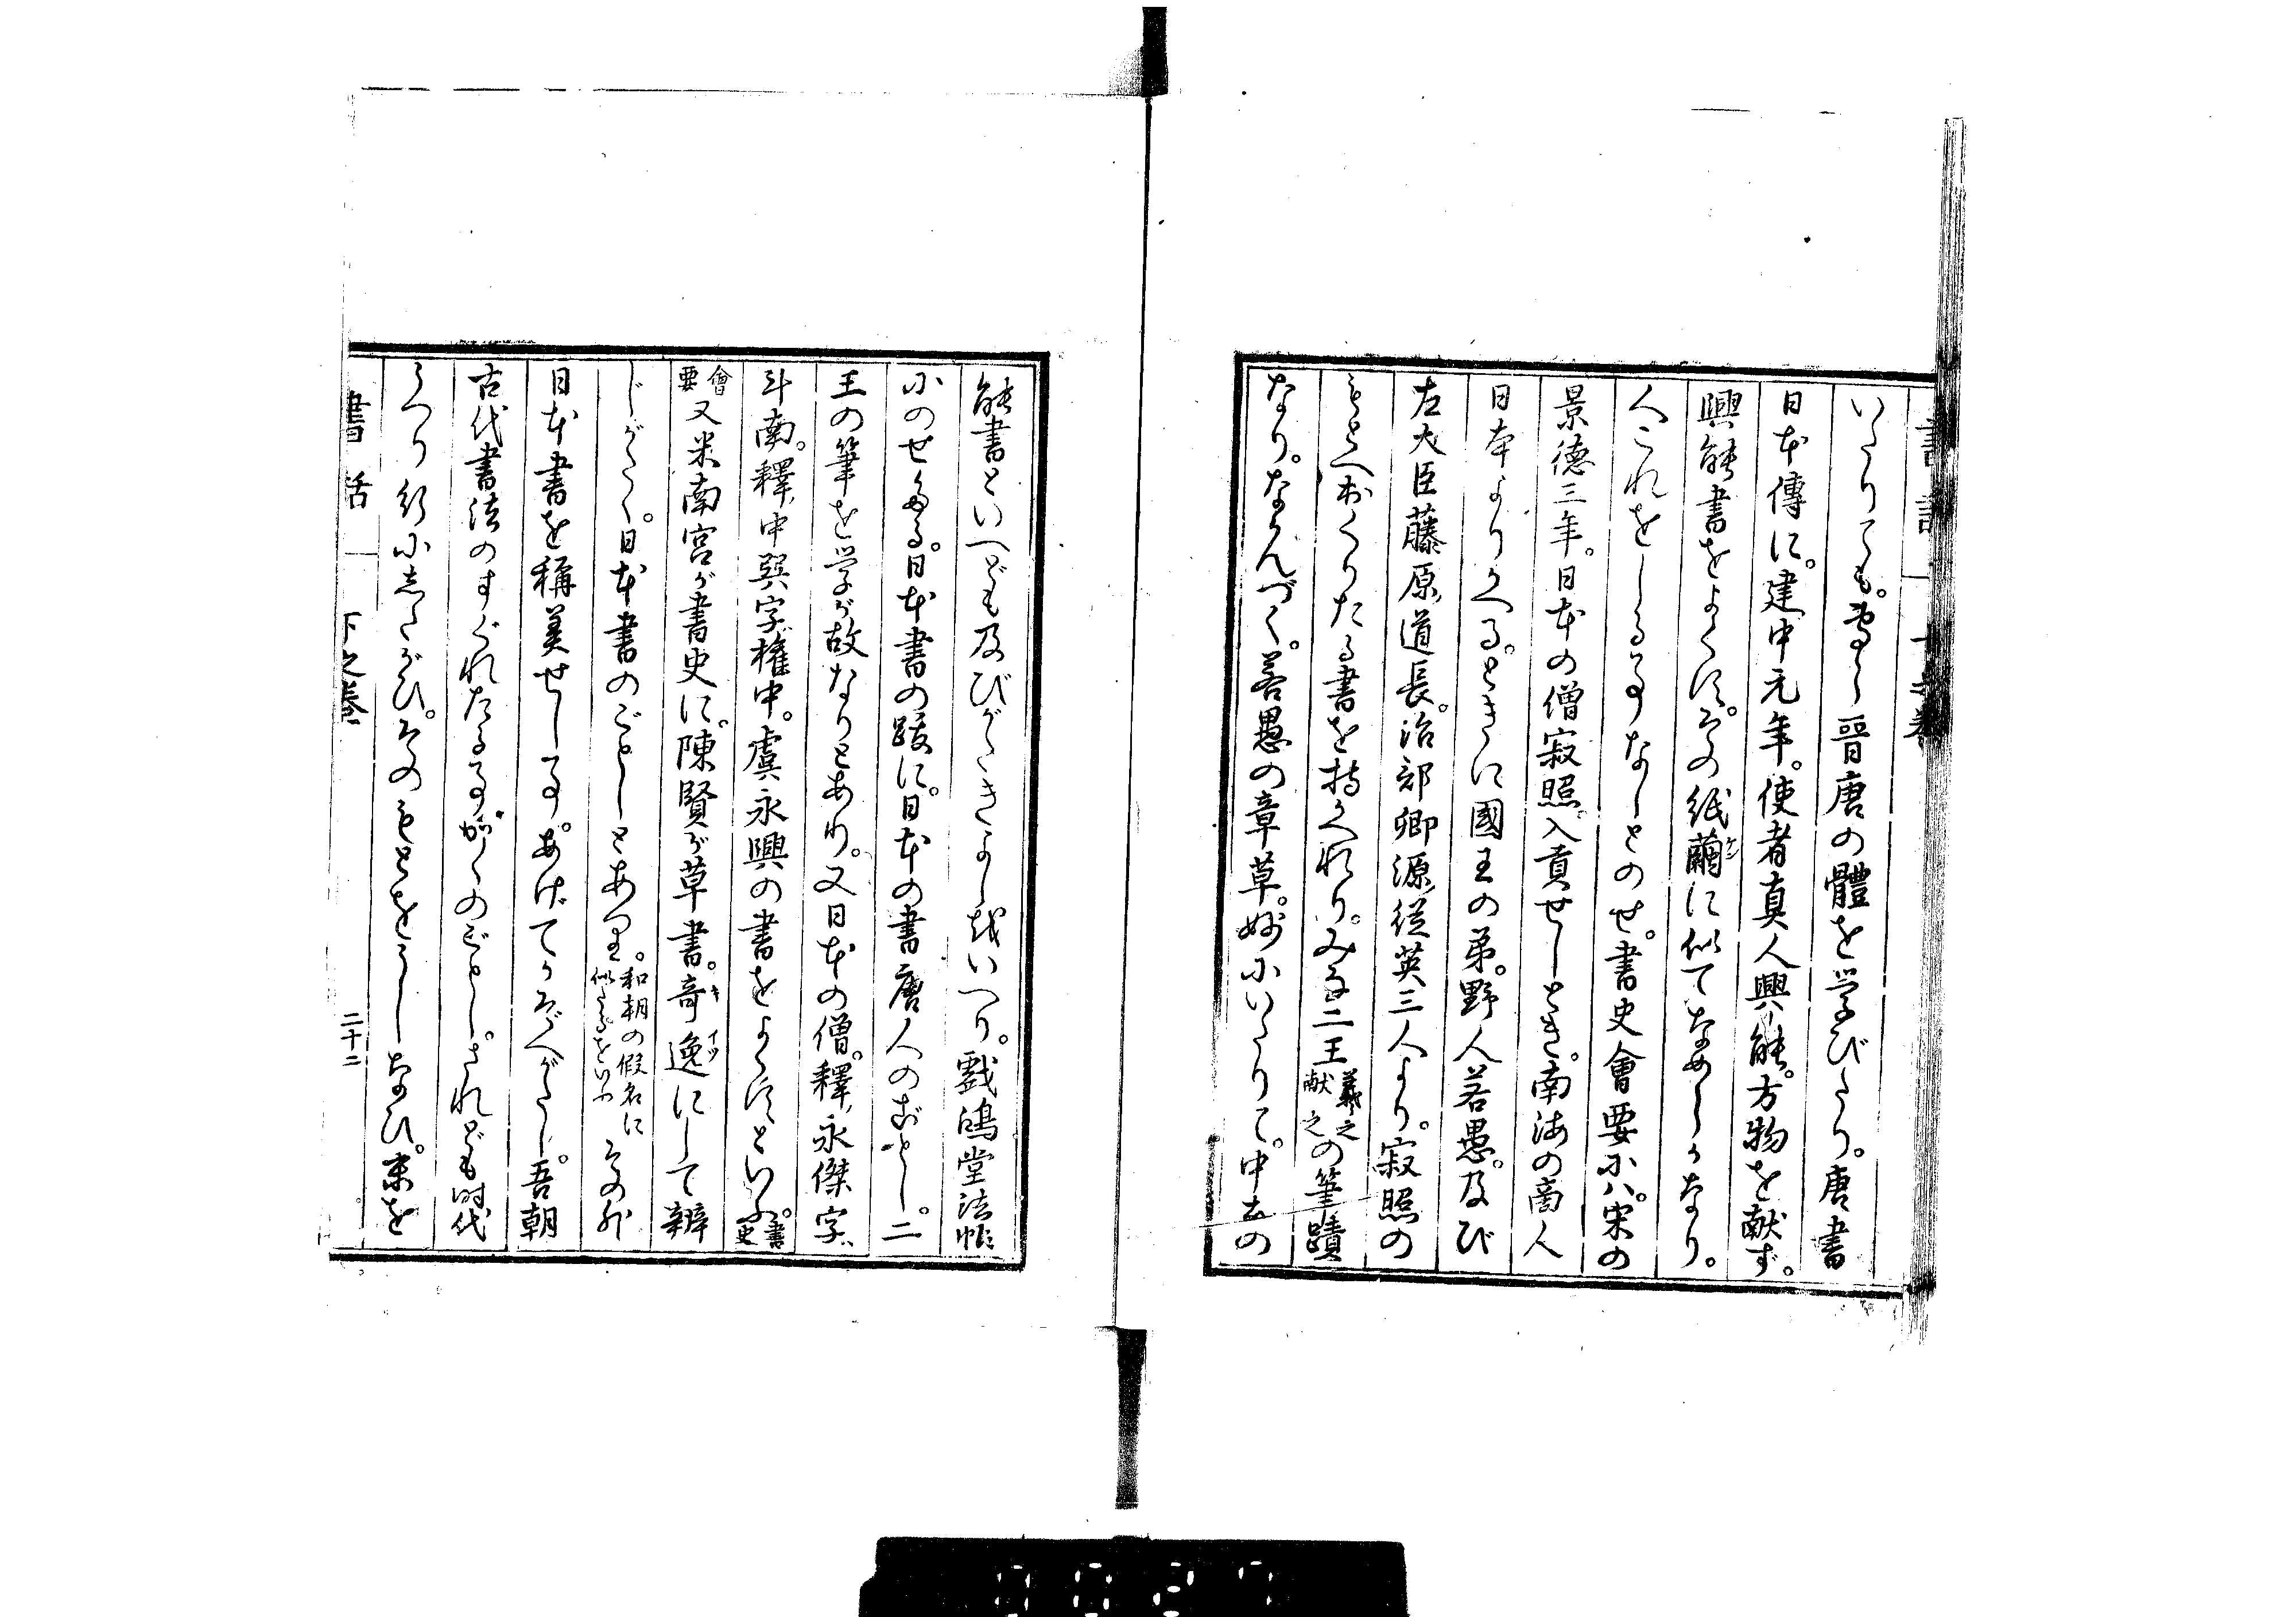 いたりても。専ら晉唐の體を学びたり。唐書
日本傳に。建中元年。使者真人興能。方物を献ず。
興能書をよくす。その紙繭に似てなめらかなり。
人これをしる事なしとのせ。書史會要小ハ。宋の
景徳三年。日本の僧寂照。入貢せしとき。南海の商人
日本よりかへる。ときに國王の弟。野人若愚。及び
左大臣藤原道長。治部卿源從英三人より。寂照の
もとへおくりたる書を持かへれり。みな二王羲之献之の筆蹟
なり。なかんづく。若愚の章草。妙小いたりて。中土の
能書といへども及びがたきよし越いへり。戲鴻堂法帖
小のせたる。日本書の跋に。日本の書唐人のごとし。二
王の筆を学ぶ故なりとあり。又日本の僧。釋永傑字
斗南。釋中巽字權中。虞永興の書をよくすといふ。書史
會要又米南宮が書史に。陳賢が草書。奇逸にして辨
じがたく。日本書のごとしとあり。和朝の假名に似たるをいふその外
日本書を稱美せし事。あげてかぞへがたし。吾朝
古代書法のすぐれたる事かくのごとし。されども时代
うつり行小志たがひ。そのもとをうしなひ。末を
書話 下之巻 二十二